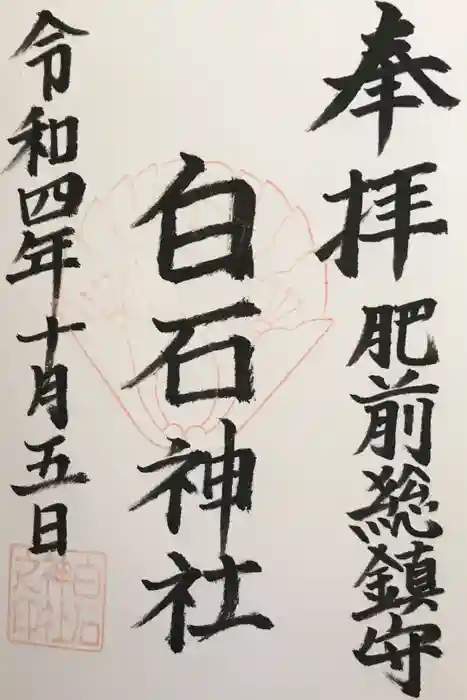 奉拝
肥前総鎮守
白石神社
令和四年十月五日
白石
神社
之印